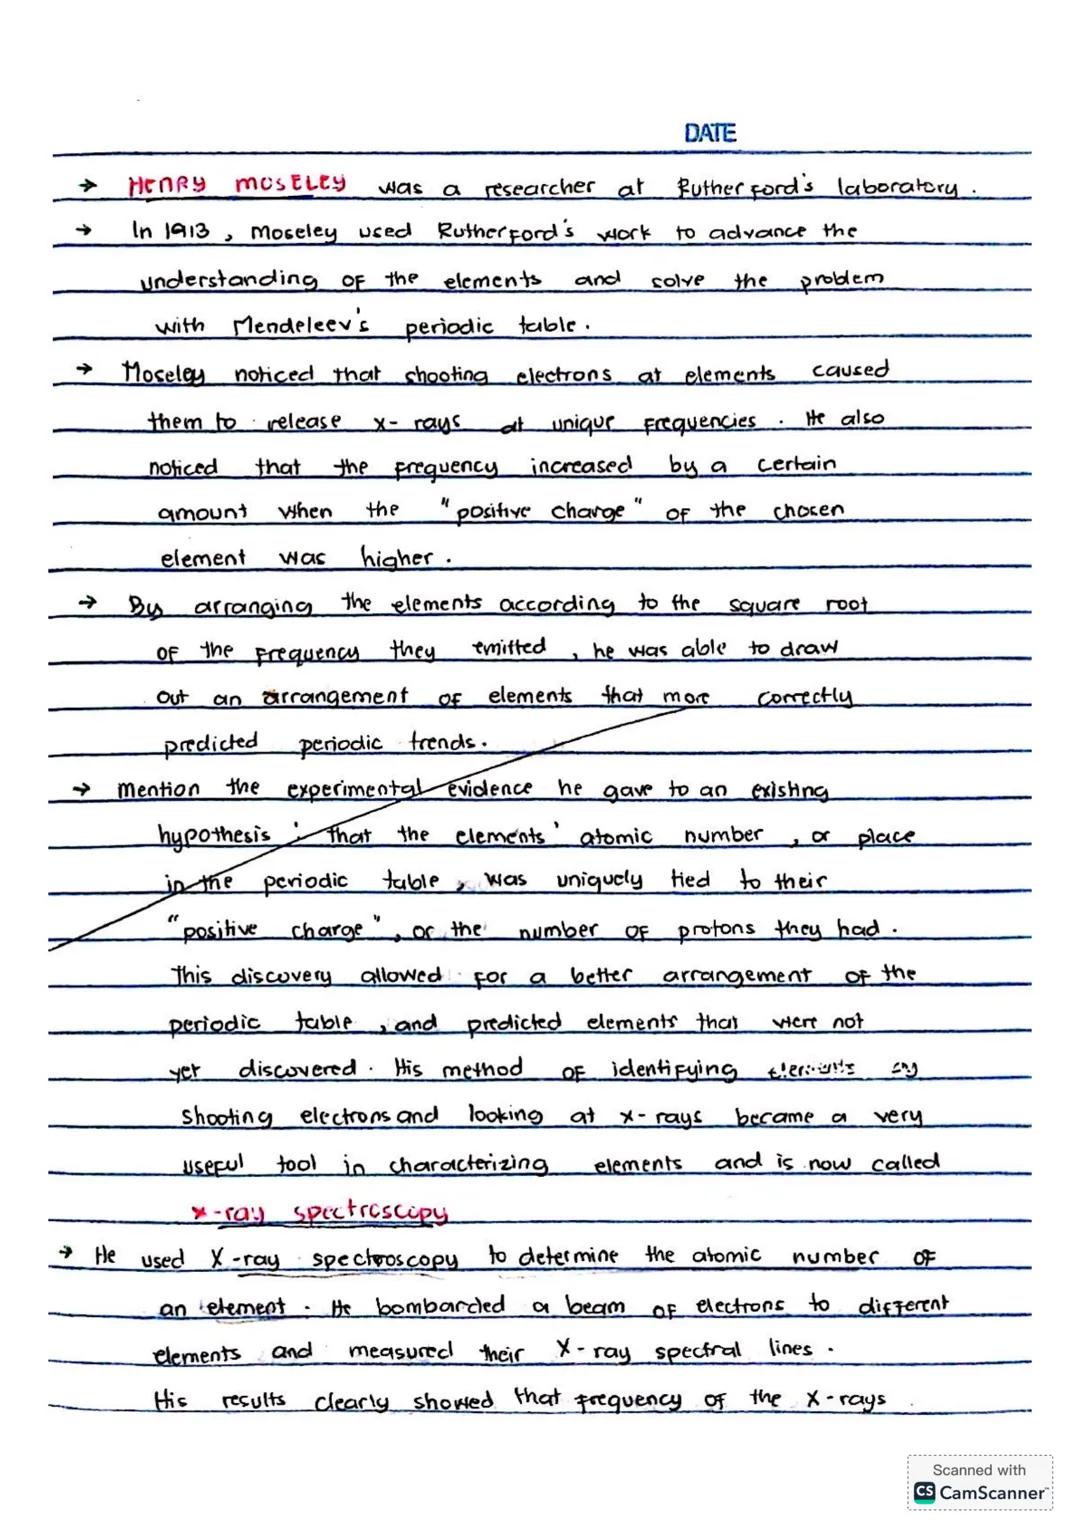 DATE
→ HENRY MOSELEY was a researcher at Rutherford's laboratory.
→ In 1913, Moseley used Rutherford's work to advance the
understanding of the elements and solve the problem
with Mendeleev's periodic table.
→ Moseley noticed that shooting electrons at elements caused
them to release x-rays at unique frequencies. He also
noticed that the frequency increased by a certain
amount when the "positive charge" of the chosen
element was higher.
→ By arranging the elements according to the square root
of the frequency they emitted, he was able to draw
out an arrangement of elements that more correctly
predicted periodic trends.
→ mention the experimental evidence he gave to an existing
hypothesis: that the elements' atomic number, or place
in the periodic table, was uniquely tied to their
"positive charge", or the number of protons they had.
This discovery allowed for a better arrangement of the
periodic table, and predicted elements that were not
yet discovered. His method of identifying elements by
shooting electrons and looking at x-rays became a very
useful tool in characterizing elements and is now called
x-ray spectroscopy
→ He used X-ray spectroscopy to determine the atomic number of
an element. He bombarded a beam of electrons to different
elements and measured their X-ray spectral lines.
His results clearly showed that frequency of the X-rays
Scanned with
CS CamScanner